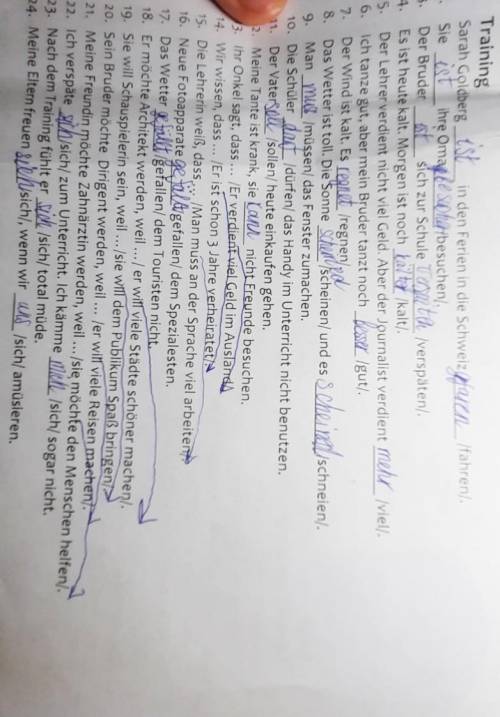 Training
1. Sarah Goldberg ist in den Ferien in die Schweiz /fahren/.
2. Sie ist ihre Oma /besuchen/.
3. Der Bruder ist sich zur Schule /verspäten/.
4. Es ist heute kalt. Morgen ist noch /kalt/.
5. Der Lehrer verdient nicht viel Geld. Aber der Journalist verdient mehr /viel/.
6. Ich tanze gut, aber mein Bruder tanzt noch besser /gut/.
7. Der Wind ist kalt. Es regnet /regnen/
8. Das Wetter ist toll. Die Sonne /scheinen/ und es /schneien/.
9. Man muss /müssen/ das Fenster zumachen.
10. Die Schüler /dürfen/ das Handy im Unterricht nicht benutzen.
11. Der Vater /sollen/ heute einkaufen gehen.
2. Meine Tante ist krank, sie nicht Freunde besuchen.
3. Ihr Onkel sagt, dass ... /Er verdient viel Geld im Ausland/.
14. Wir wissen, dass ... /Er ist schon 3 Jahre verheiratet/.
15. Die Lehrerin weiß, dass ... /Man muss an der Sprache viel arbeiten/.
16. Neue Fotoapparate /gefallen/ dem Spezialesten.
17. Das Wetter gefällt /gefallen/ dem Touristen nicht.
18. Er möchte Architekt werden, weil ... / er will viele Städte schöner machen/.
19. Sie will Schauspielerin sein, weil ... /sie will dem Publikum Spaß bringen/.
20. Sein Bruder möchte Dirigent werden, weil ... /er will viele Reisen machen/.
21. Meine Freundin möchte Zahnärztin werden, weil ... /sie möchte den Menschen helfen/.
22. Ich verspäte /sich/ zum Unterricht. Ich kämme mich /sich/ sogar nicht.
23. Nach dem Training fühlt er sich /sich/ total müde.
24. Meine Eltern freuen /sich/, wenn wir uns /sich/ amüsieren.